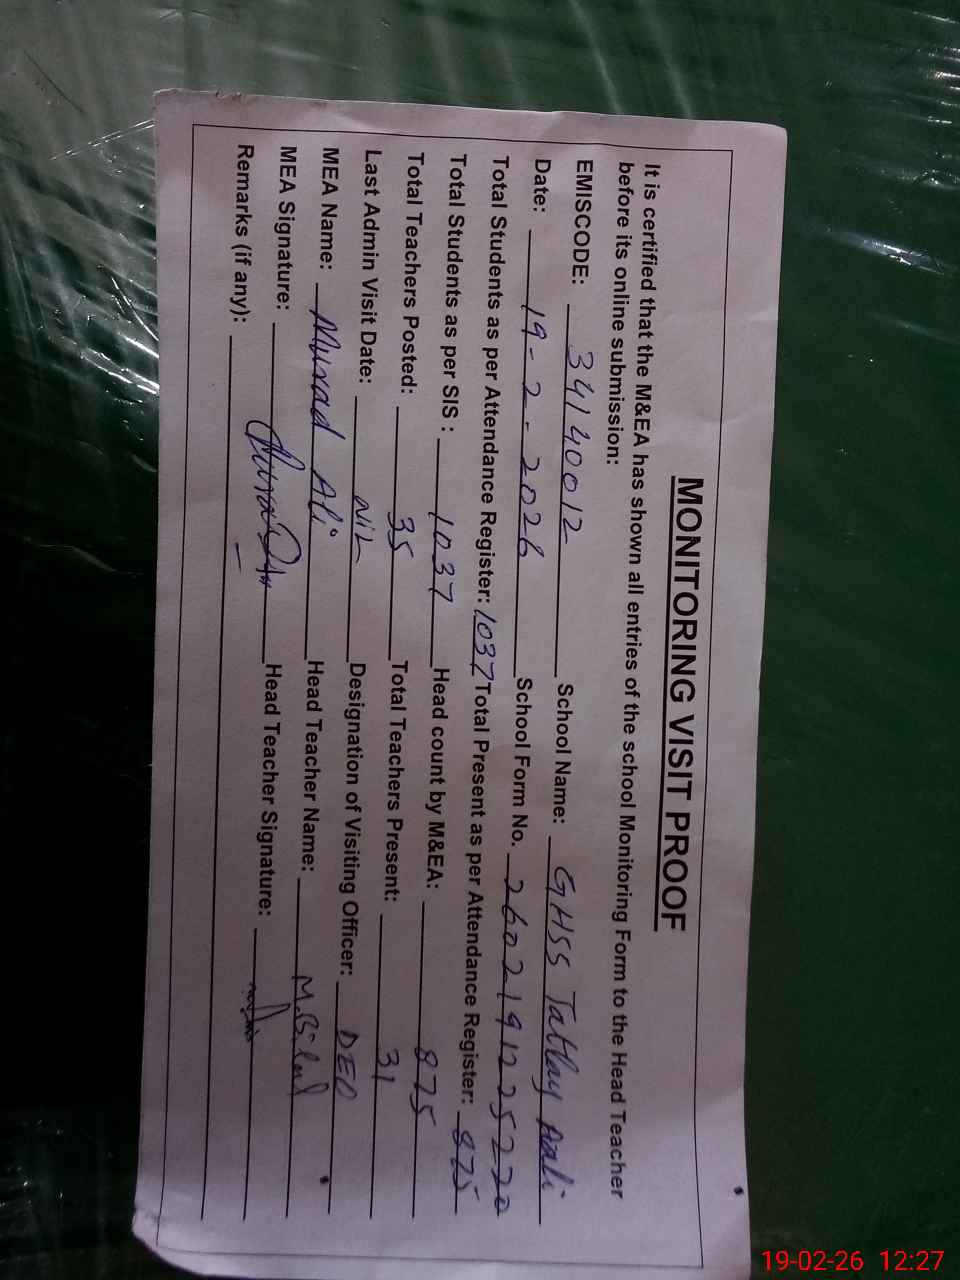 MONITORING VISIT PROOF
It is certified that the M&EA has shown all entries of the school Monitoring Form to the Head Teacher
before its online submission:
EMISCODE: 34140012 School Name: GHSS Tatlay Aali
Date: 19-2-2026 School Form No. 2602191225220
Total Students as per Attendance Register: 1037 Total Present as per Attendance Register: 875
Total Students as per SIS : 1037 Head count by M&EA: 875
Total Teachers Posted: 35 Total Teachers Present: 31
Last Admin Visit Date: NIL Designation of Visiting Officer: DEO
MEA Name: Murad Ali Head Teacher Name: M.Bilal
MEA Signature: Head Teacher Signature:
Remarks (if any): –
19-02-26 12:27